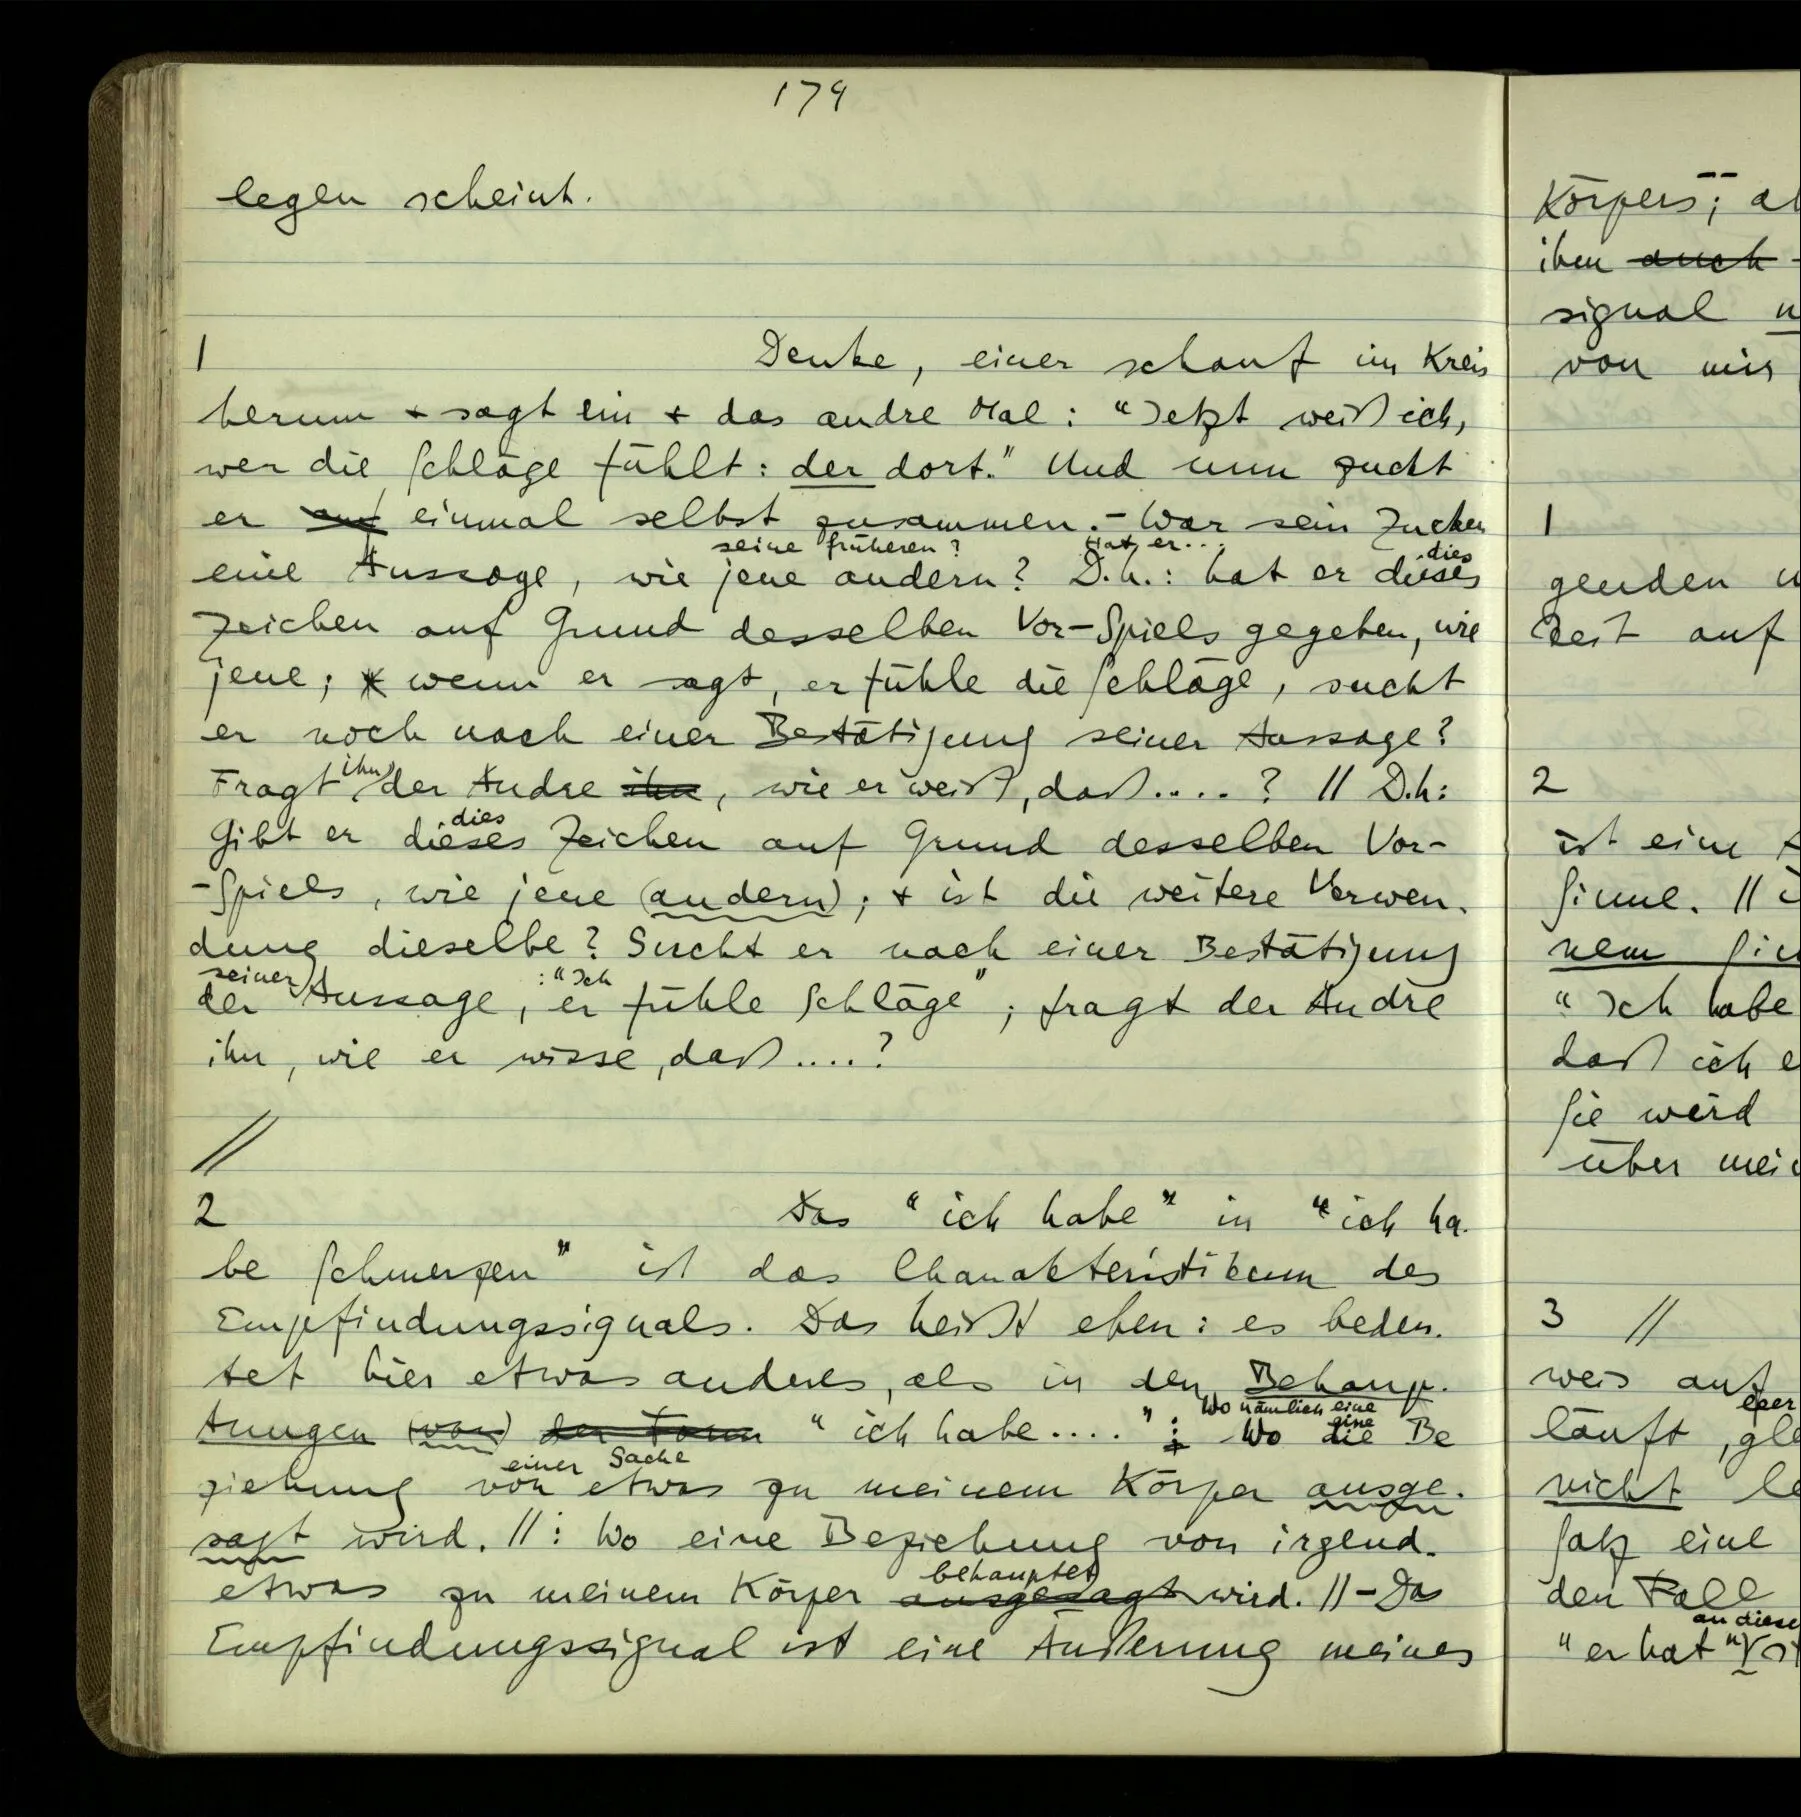 179
legen scheint.
1 Denke, einer schaut im Kreis
herum + sagt ein + das andre Mal: “Jetzt weiß ich,
wer die Schläge fühlt: der dort.” Und nun zuckt
er auf einmal selbst zusammen. – War sein Zucken
seine früheren? Hat er...
eine Aussage, wie jene andern? D.h.: hat er dieses
dies
Zeichen auf Grund desselben Vor-Spiels gegeben, wie
jene; wenn er sagt, er fühle die Schläge, sucht
er noch nach einer Bestätigung seiner Aussage?
Fragt ihn der Andre ihn, wie er weiß, daß....? // D.h:
dies
Gibt er dieses Zeichen auf Grund desselben Vor-
-Spiels, wie jene (andern); + ist die weitere Verwen-
dung dieselbe? Sucht er nach einer Bestätigung
seiner :“Ich
der Aussage, er fühle Schläge”; fragt der Andre
ihn, wie er wisse, daß....?
//
2 Das “ich habe” in “ich ha-
be Schmerzen” ist das Charakteristikum des
Empfindungssignals. Das heißt eben: es bedeu-
tet hier etwas anderes, als in den Behaup-
Wo nämlich eine
tungen (von) der Form “ich habe....”: Wo die Be
eine
einer Sache
ziehung von etwas zu meinem Körper ausge-
sagt wird. //: Wo eine Beziehung von irgend-
behauptet
etwas zu meinem Körper ausgesagt wird. // – Das
Empfindungssignal ist eine Äußerung meines
Körpers;
ihm auch
signal
von mir
1
genden
Zeit auf
2
ist eine
Sinne. //
nem
“Ich habe
daß ich
Sie wird
über
3 //
weis auf
läuft,
nicht
Satz eine
den Fall
an diese
“er hat”